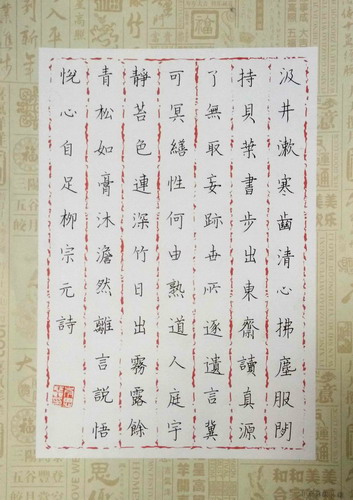 汲井漱寒齒清心拂塵服閑
持貝葉書步出東齋讀真源
了無取妄跡世所逐遺言冀
可冥繕性何由熟道人庭宇
靜苔色連深竹日出霧露餘
青松如膏沐澹然離言說悟
悅心自足柳宗元詩